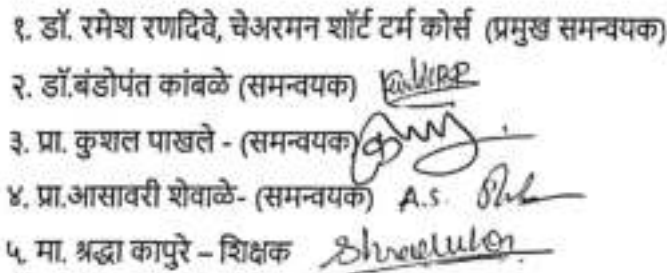 १. डॉ. रमेश रणदिवे, चेअरमन शॉर्ट टर्म कोर्स (प्रमुख समन्वयक)
२. डॉ.बंडोपंत कांबळे (समन्वयक)
३. प्रा. कुशल पाखले - (समन्वयक)
४. प्रा.आसावरी शेवाळे- (समन्वयक) A.S.
५. मा. श्रद्धा कापुरे – शिक्षक